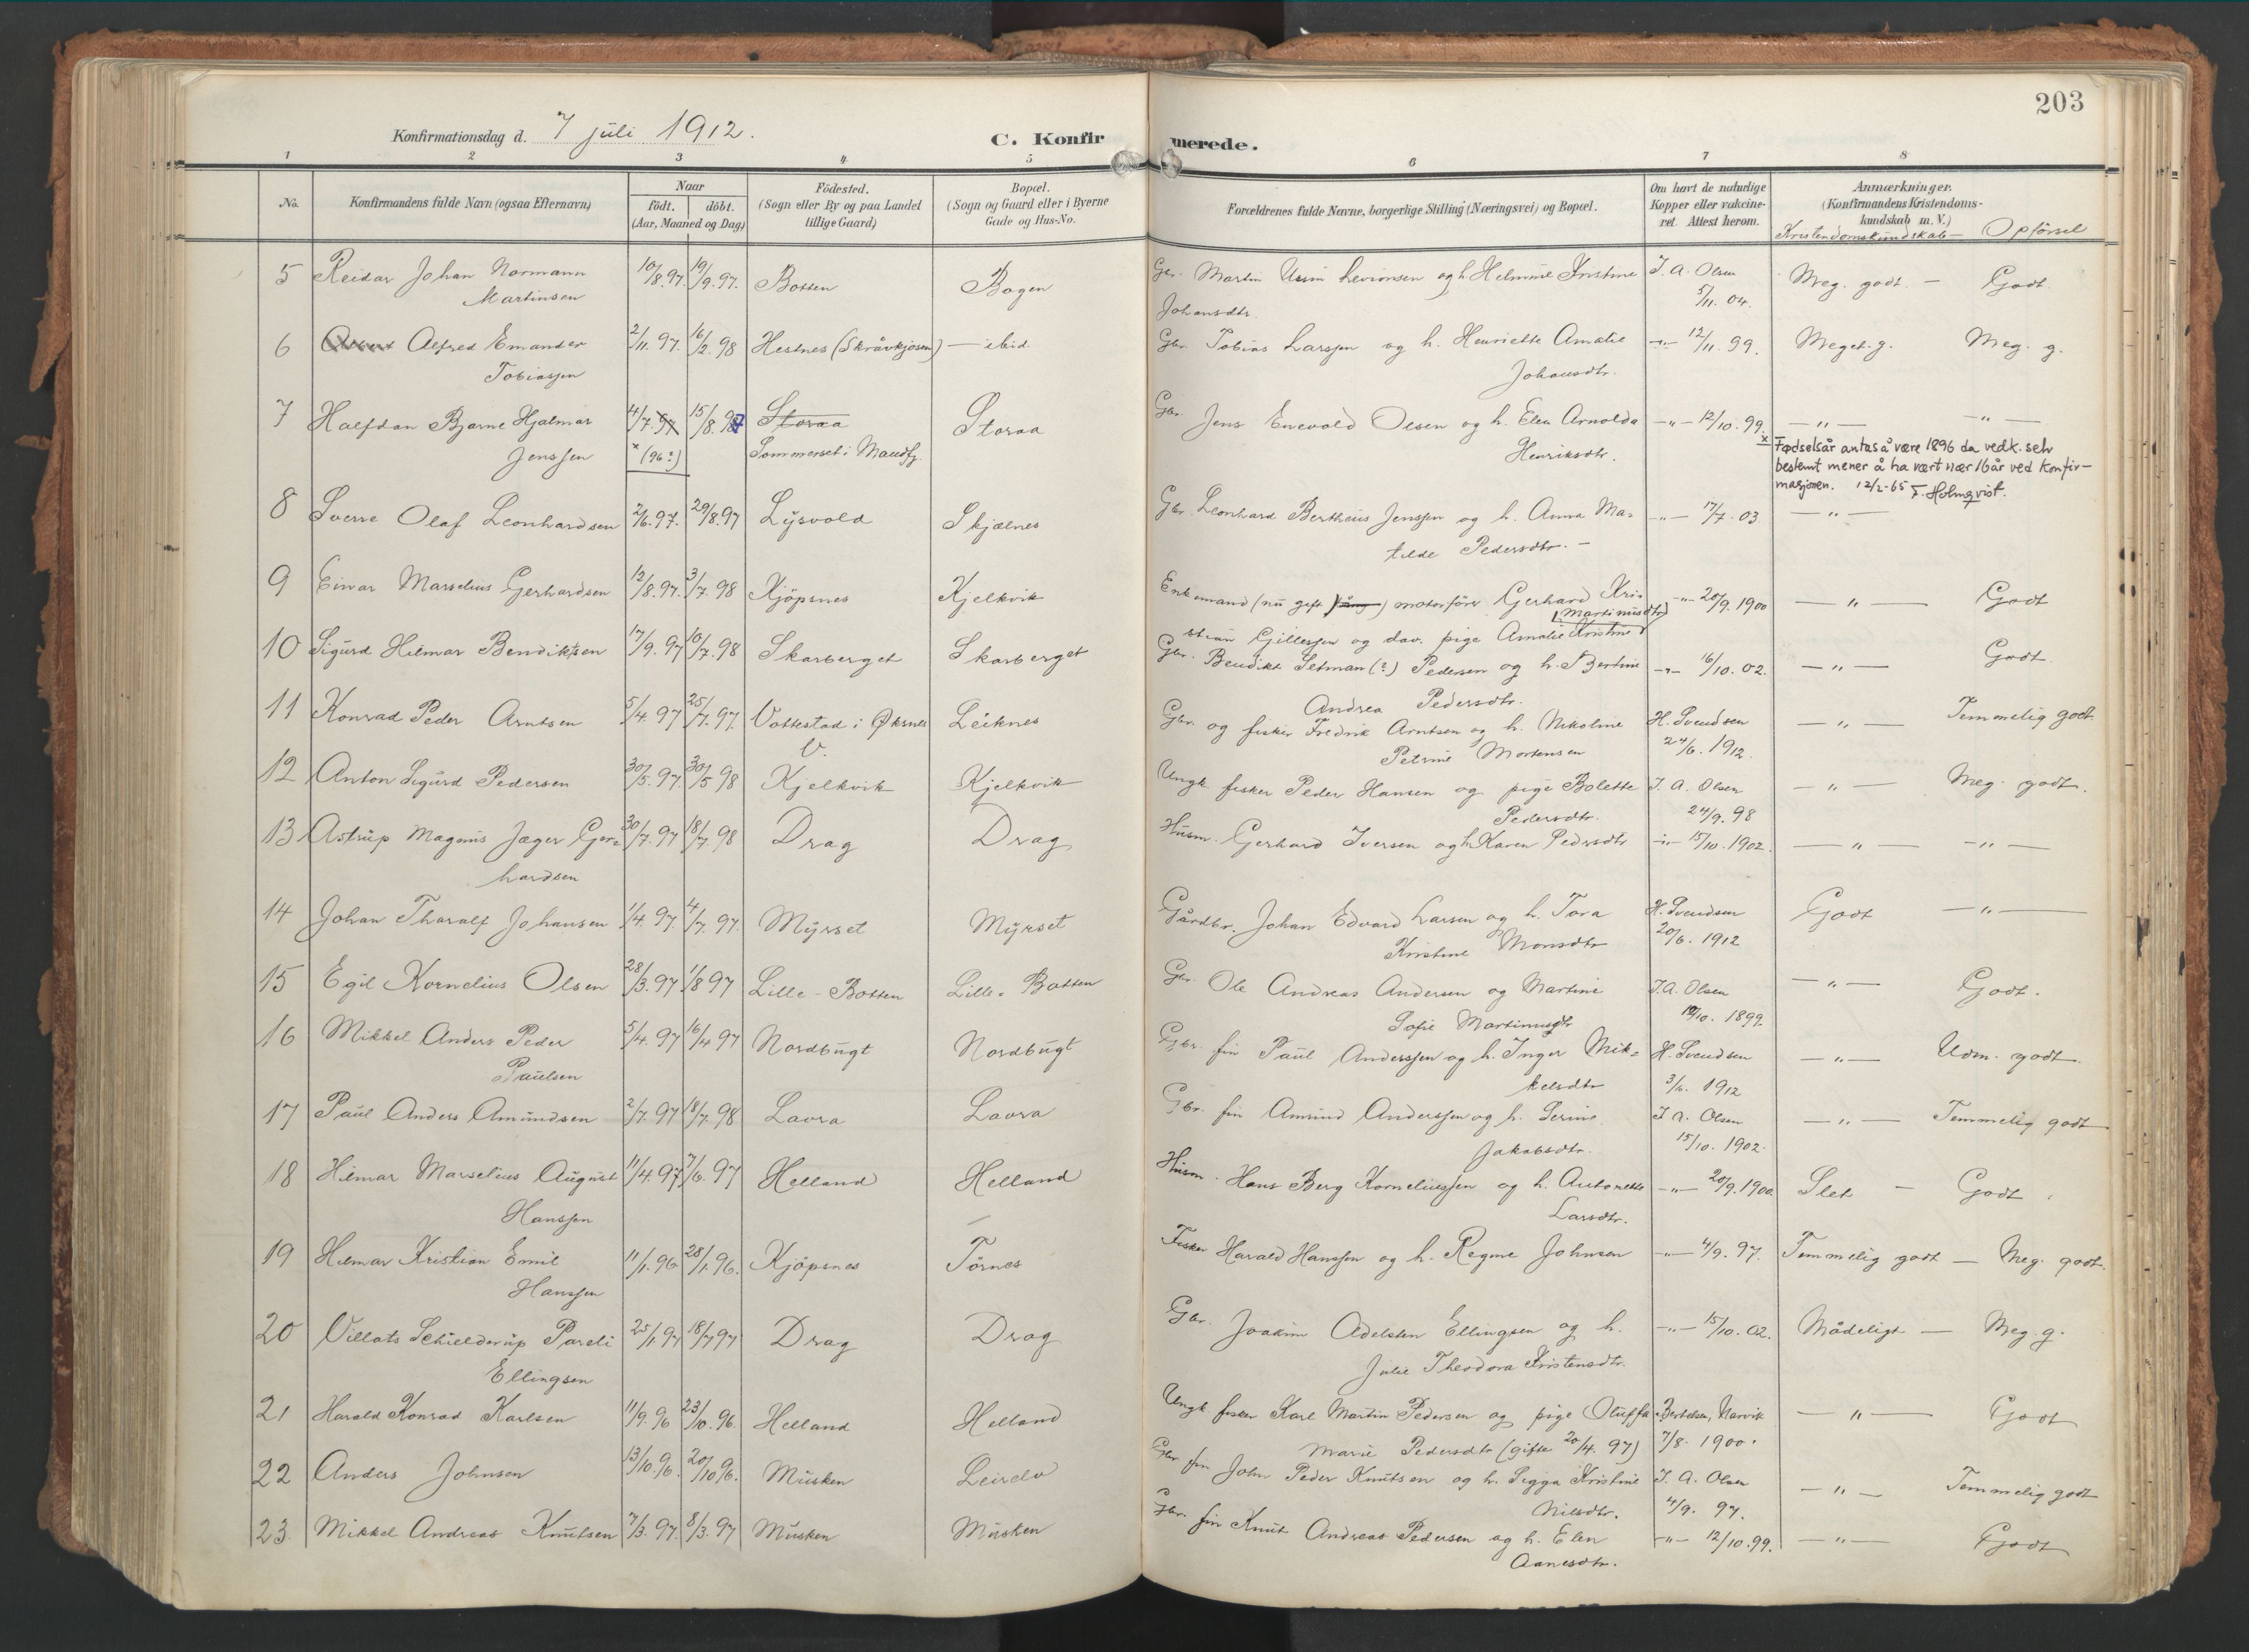 203
Konfirmationsdag d. 7 juli 1912.
C. Konfirmerede.
1 2 3 4 5 6 7 8
No.
Konfirmandens fulde Navn (ogsaa Efternavn)
Naar
födt. döbt.
(Aar, Maaned og Dag)
Födested.
(Sogn eller By og paa Landet
tillige Gaard)
Bopæl.
(Sogn og Gaard eller i Byerne
Gade og Hus-No.
Forældrenes fulde Navne, borgerlige Stilling (Næringsvei) og Bopæl.
Om havt de naturlige
Kopper eller vakcine-
ret. Attest herom.
Anmærkninger.
(Konfirmandens Kristendoms-
kundskab m. V.)
Kristendomskundskab — Opförsel
5 Reidar Johan Normann 10/8.97. 19/9.97. Botten Bogen Gbr. Martin og h. Helmine Kristine J. A. Olsen Meg. godt. — Godt.
Martinsen Johansdtr. 5/11. 04.
6 Alfred Emander 2/11. 97. 16/2. 98 Hestnes (Skråvkjosen) — ibid. Gbr. Tobias Larssen og h. Henriette Amalie —„— 12/11. 99. Meget g. Meg. g.
Tobiassen Johansdtr.
7 Halfdan Bjarne Hjalmar 4/7.97 15/8.97 Storaa Storaa Gbr. Jens Enevold Olsen og h. Elen Arnolda —„— 12/10. 99. —„— —„—
Jenssen × (96?) Sommerset i Mandfj. Henriksdtr.
× Fødselsår antas å være 1896 da vedk. selv
bestemt mener å ha vært nær 16 år ved konfir-
masjonen. 12/2-65 F. Holmqvist.
8 Sverre Olaf Leonhardsen 2/6.97. 29/8.97 Lysvold Skjælnes Gbr. Leonhard Bertheus Jenssen og h. Anna Ma- —„— 17/7. 03 —„—
tilde Pedersdtr. —
9 Einar Marselius Gerhardsen 12/8.97. 3/7. 98 Kjöpsnes Kjelkvik Enkemand (nu gift) motorförer Gerhard Kri- —„— 20/9. 1900 —„— Godt
stian Gillessen og dav. pige Amalie Kristine Martinusdtr
10 Sigurd Hilmar Bendiktsen 17/9. 97 10/7. 98 Skarberget Skarberget Gbr. Bendikt Setman (?) Pedersen og h. Bertine —„— 16/10. 02. —„— Godt
Andrea Pedersdtr.
11 Konrad Peder Arntsen 5/4. 97 25/7. 97. Vottestad i Øksnes Leiknes Gbr. og fisker Fredrik Arntsen og h. Nikoline H. Svendsen —„— Temmelig godt.
V. Petrine Mortensen 24/6. 1912.
12 Anton Sigurd Pedersen 30/5. 97. 30/5 98 Kjelkvik Kjelkvik Ungk. fisker Peder Hansen og pige Bolette J. A. Olsen —„— Meg. godt.
Pedersdtr. 24/9. 98
13 Astrup Magnus Jæger Ger- 30/7. 97 18/7. 98 Drag Drag Husm. Gerhard Iversen og h. Karen Pedrsdtr —„— 15/10. 1902. —„— —„—
hardsen
14 Johan Tharalf Johansen 1/4. 97 4/7. 97. Myrset Myrset Gårdbr. Johan Edvard Larsen og h. Tora H. Svendsen Godt —„—
Kristine Monsdtr 20/6. 1912
15 Egil Kornelius Olsen 28/3. 97 1/8 97 Lille-Botten Lille-Botten Gbr. Ole Andreas Andersen og Martine J. A. Olsen —„— Godt.
Sofie Martinusdtr 12/10. 1899.
16 Mikkel Anders Peder 5/4. 97 16/4 97 Nordbugt Nordbugt Gbr. fin Paul Anderssen og h. Inger Mik- H. Svendsen —„— Udm. godt.
Paulsen kelsdtr 3/6. 1912
17 Paul Anders Amundsen 2/7. 97 18/7. 98 Lavra Lavra Gbr. fin Amund Anderssen og h. Serine J. A. Olsen —„— Temmelig godt
Jakobsdtr. 15/10. 1902.
18 Hilmar Marselius August 11/4. 97 7/6. 97 Helland Helland Husm. Hans Berg Korneliussen og h. Antonette —„— 20/9. 1900. Slet — Godt.
Hanssen Larsdtr.
19 Hilmar Kristian Emil 11/1. 96 28/1. 96. Kjöpsnes Törnes Fisker Harald Hanssen og h. Regine Johnsen —„— 4/9. 97. Temmelig godt — Meg. godt.
Hanssen
20 Villats Schielderup Pareli 25/1 97 18/7 97 Drag Drag Gbr. Joakim Adelsten Ellingsen og h. —„— 15/10. 02. Mådeligt — Meg. g.
Ellingsen Julie Theodora Kristensdtr.
21 Harald Konrad Karlsen 11/9. 96 23/10. 96. Helland Helland Ungk. fisker Karl Martin Pedersen og pige Oluffa Bertelsen, Narvik —„— Godt
Marie Pedersdtr (gifte 20/4. 97) 7/8. 1900.
22 Anders Johnsen 13/10. 96. 20/10 96. Musken Leirelv Gbr. fin John Peder Knutsen og h. Sigga Kristine J. A. Olsen —„— Temmelig godt
Nilsdtr. 4/9. 97.
23. Mikkel Andreas Knutsen 7/3. 97. 8/3. 97 Musken Musken Gbr. fin Knut Andreas Pedersen og h. Elen —„— 12/10. 99. —„— Godt
Aanesdtr.